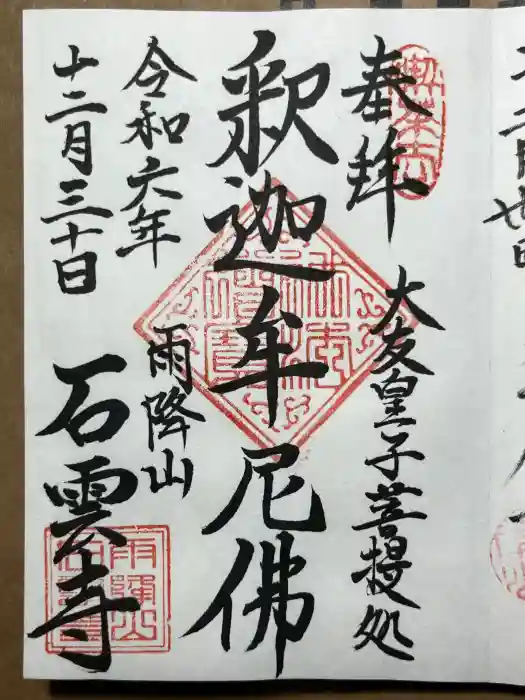 奉拝
大友皇子菩提処
釈迦牟尼佛
令和六年
十二月三十日
雨降山
石雲寺